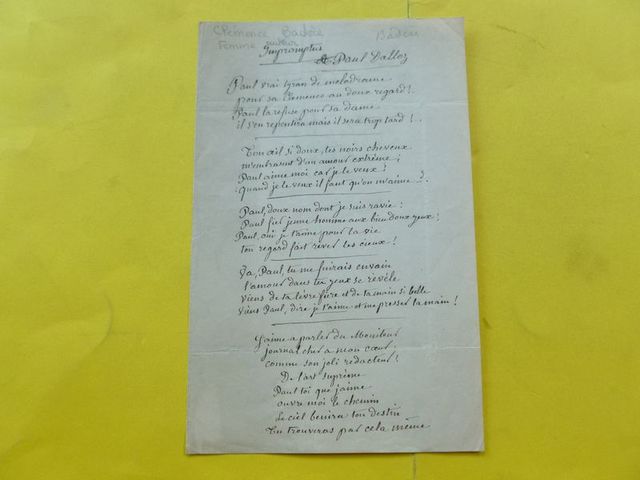 Clémence Badère Badère
Femme auteur
Impromptus
à Paul Dalloz
Paul vrai tyran de mélodrame
pour sa Clémence au doux regard !
Paul la refuse pour sa dame
il s'en repentira mais il sera trop tard !
Ton œil si doux, tes noirs cheveux
m'embrasent d'un amour extrême ;
Paul aime moi car je le veux !
quand je le veux il faut qu'on m'aime !
Paul, doux nom dont je suis ravie ;
Paul fier jeune homme aux bleu doux yeux ;
Paul, oui je t'aime pour la vie
ton regard fait rêver les cieux !
Va, Paul, tu me fuirais envain
l'amour dans tes yeux se révèle
viens de ta lèvre fière et de ta main si belle
viens Paul, dire je t'aime et me presser la main !
J'aime a parler du Moniteur
journal cher a mon cœur
comme son joli rédacteur !
De l'art suprême
Paul toi que j'aime
ouvre moi le chemin
le ciel bénira ton destin
tu trouveras par cela même